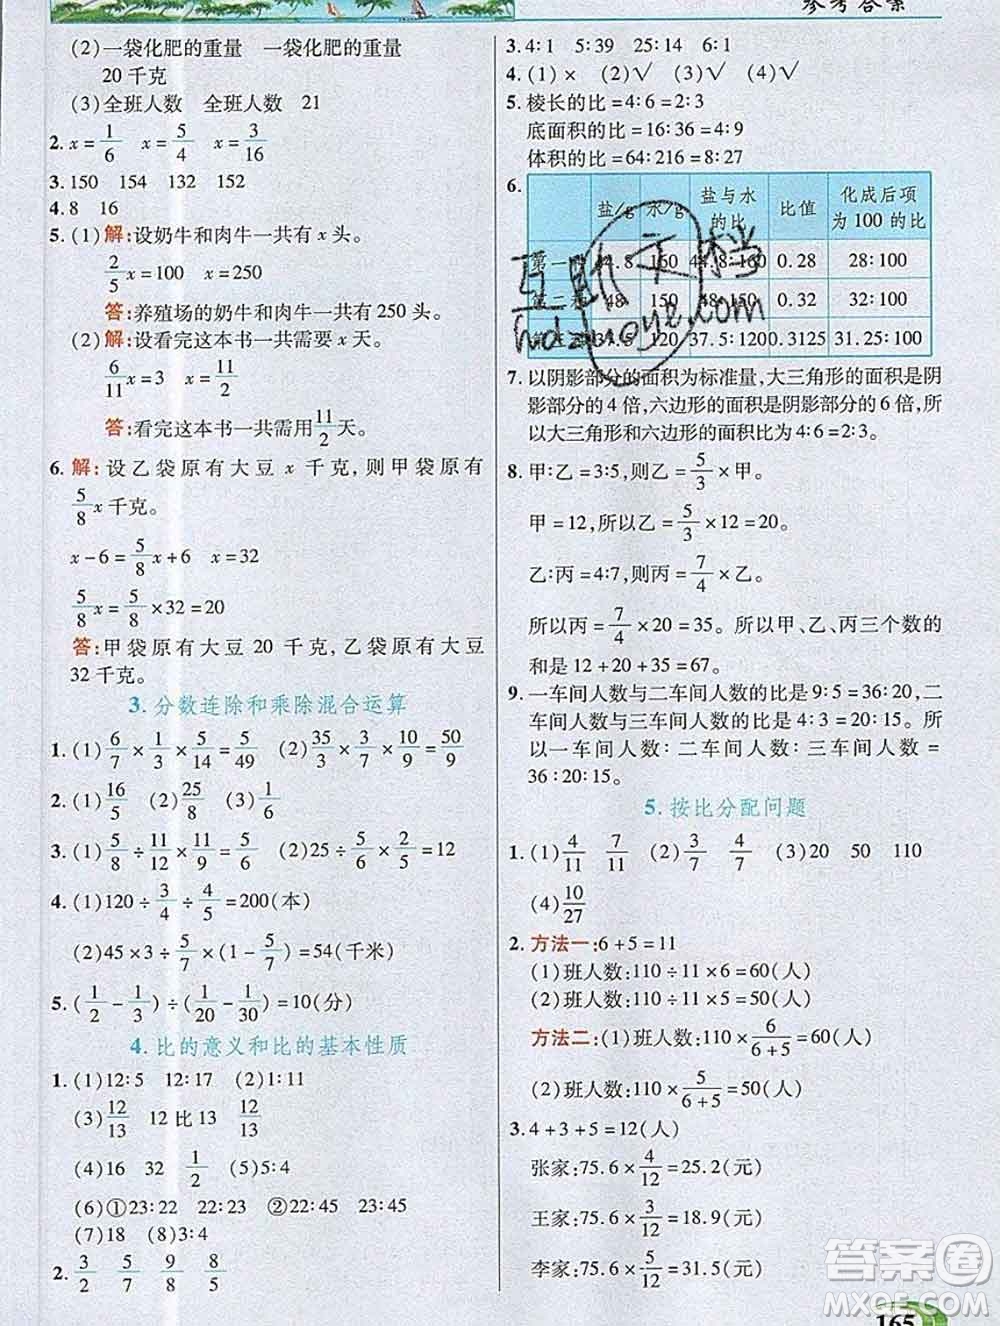 参考答案
(2)一袋化肥的重量 一袋化肥的重量
20 千克
(3)全班人数 全班人数 21
2. x=1/6 x=5/4 x=3/16
3. 150 154 132 152
4. 8 16
5. (1)解:设奶牛和肉牛一共有 x 头。
2/5x=100 x=250
答:养殖场的奶牛和肉牛一共有 250 头。
(2)解:设看完这本书一共需要 x 天。
6/11x=3 x=11/2
答:看完这本书一共需用11/2天。
6. 解:设乙袋原有大豆 x 千克,则甲袋原有
5/8x 千克。
x-6=5/8x+6 x=32
5/8x=5/8×32=20
答:甲袋原有大豆 20 千克,乙袋原有大豆
32 千克。
3. 分数连除和乘除混合运算
1. (1)6/7×1/3×5/14=5/49 (2)35/3×3/7×10/9=50/9
2. (1)16/5 (2)25/8 (3)1/6
3. (1)5/8÷11/12×11/9=5/6 (2)25÷5/6×2/5=12
4. (1)120÷3/4÷4/5=200(本)
(2)45×3÷5/7×(1-5/7)=54(千米)
5. (1/2-1/3)÷(1/20-1/30)=10(分)
4. 比的意义和比的基本性质
1. (1)12∶5 12∶17 (2)1∶11
(3)12/13 12 比 13 12/13
(4)16 32 1/2 (5)5∶4
(6)①23∶22 23∶45 ②22∶45 23∶45
(7)18 (8)3∶4
2. 3/2 5/2 9/8 8/5
3. 4∶1 5∶39 25∶14 6∶1
4. (1)× (2)√ (3)√ (4)√
5. 棱长的比=4∶6=2∶3
底面积的比=16∶36=4∶9
体积的比=64∶216=8∶27
6. 盐/g 水/g 盐与水的比 比值 化成后项为 100 的比
第一 44.8 160 44.8∶160 0.28 28∶100
第二 48 150 48∶150 0.32 32∶100
37.5 120 37.5∶120 0.3125 31.25∶100
互助文档
hdzuoye.com
7. 以阴影部分的面积为标准量,大三角形的面积是阴
影部分的 4 倍,六边形的面积是阴影部分的 6 倍,所
以大三角形和六边形的面积比为 4∶6=2∶3。
8. 甲∶乙=3∶5,则乙=5/3×甲。
甲=12,所以乙=5/3×12=20。
乙∶丙=4∶7,所以丙=7/4×乙。
所以丙=7/4×20=35。所以甲、乙、丙三个数的
和是 12+20+35=67。
9. 一车间人数与二车间人数的比是 9∶5=36∶20,二
车间人数与三车间人数的比是 4∶3=20∶15。所
以一车间人数∶二车间人数∶三车间人数=
36∶20∶15。
5. 按比分配问题
1. (1)4/11 7/11 (2)3/7 4/7 (3)20 50 110
(4)10/27
2. 方法一:6+5=11
(1)班人数:110÷11×6=60(人)
(2)班人数:110÷11×5=50(人)
方法二:(1)班人数:110×6/(6+5)=60(人)
(2)班人数:110×5/(6+5)=50(人)
3. 4+3+5=12(人)
张家:75.6×4/12=25.2(元)
王家:75.6×3/12=18.9(元)
李家:75.6×5/12=31.5(元)
答案圈
MXQE.COM
165